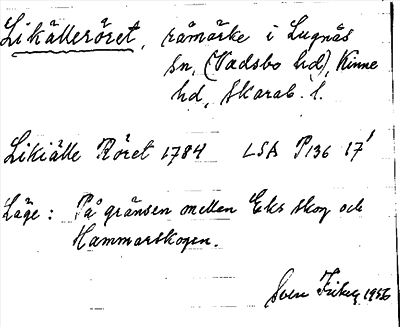 Likälleröret, råmärke i Lugnås
sn, (Vadsbo hd), Kinne
hd, Skarab. l.
Likiälle Röret 1784 LSA P136 17¹
Läge: På gränsen mellan Eks skog och
Hammarskogen.
Sven 1956